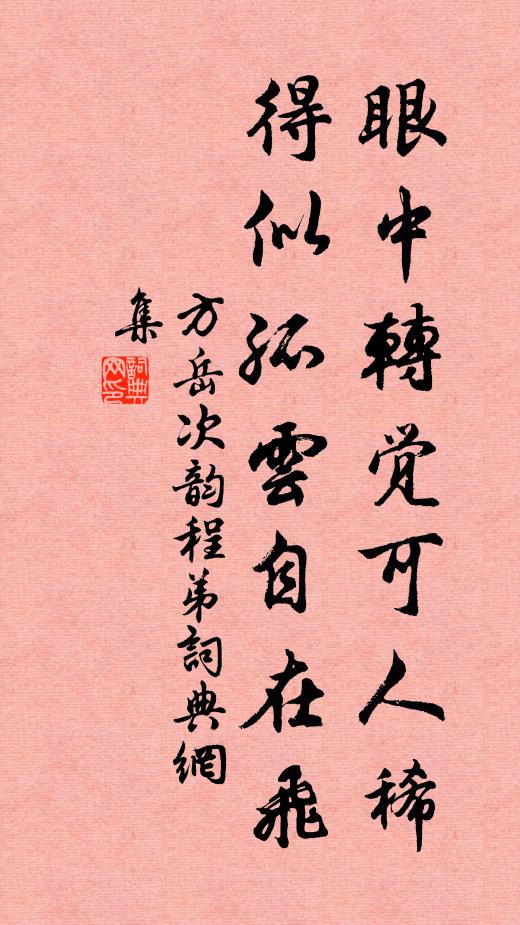 眼中轉覺可人稀
得似孤雲自在飛
方岳次韵程弟詞典網
集
詞典
网印